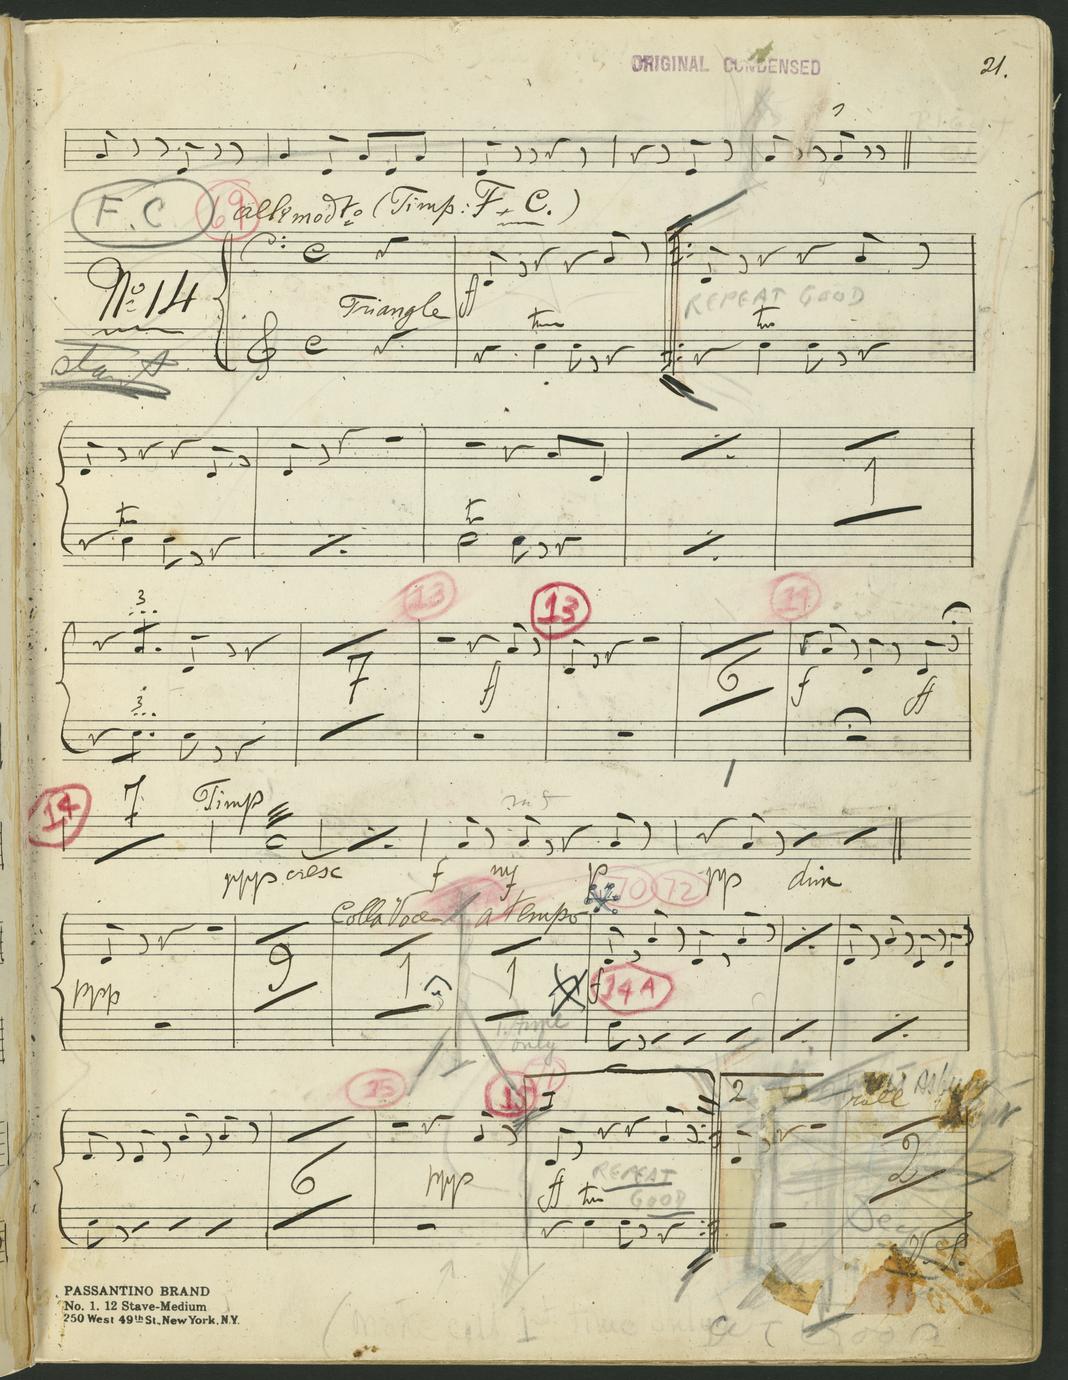 ORIGINAL CONDENSED
21.
F. C 69 All° modto (Timp: F + C.)
No 14
Triangle ff
REPEAT GOOD
tr tr
start
tr tr
1
3
13 13 14
7 f 6 f ff
3
14 7 Timp
ppp cresc f mf p pp dim
Colla Voce a tempo 70 72
ppp 9 1 1 f 14 A
1. time
only
15 15 71
1 2 rall
6 ppp ff REPEAT 2
tr GOOD
V.S.
PASSANTINO BRAND
No. 1. 12 Stave-Medium
250 West 49th St., New York, N.Y.
1st time only